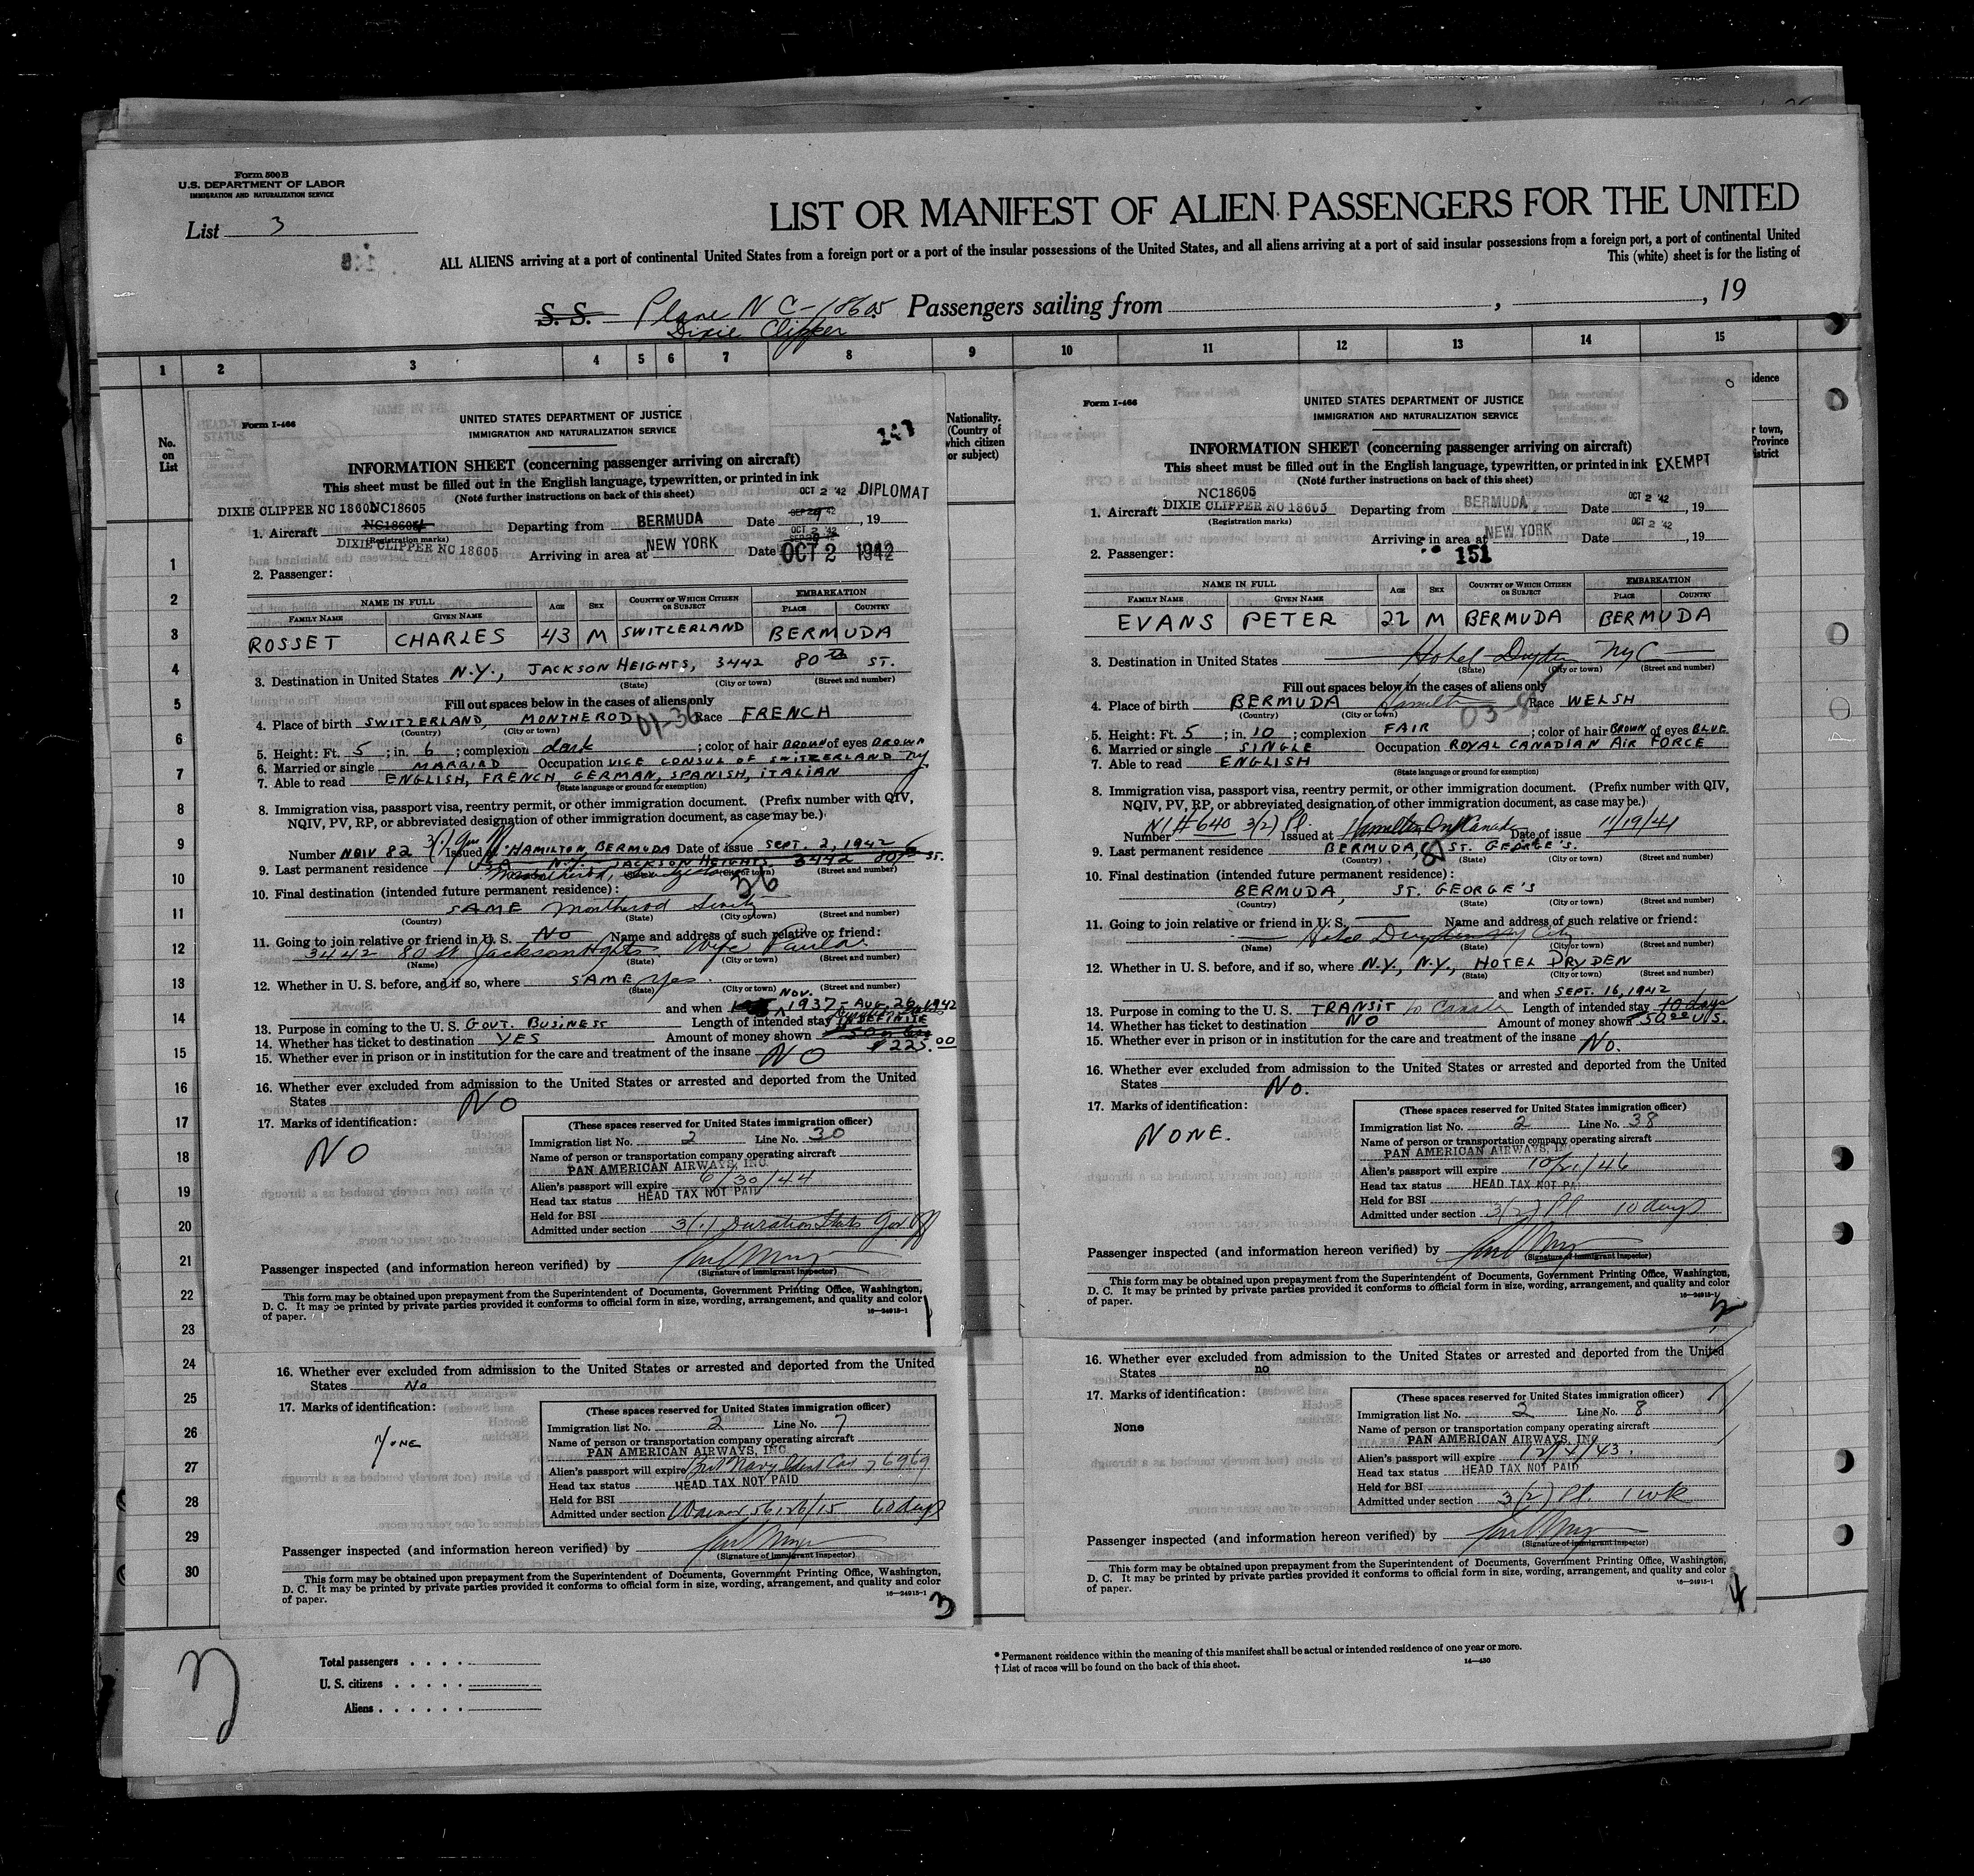 Form 500B
U.S. DEPARTMENT OF LABOR
IMMIGRATION AND NATURALIZATION SERVICE
List 3
LIST OR MANIFEST OF ALIEN PASSENGERS FOR THE UNITED
ALL ALIENS arriving at a port of continental United States from a foreign port or a port of the insular possessions of the United States, and all aliens arriving at a port of said insular possessions from a foreign port, a port of continental United
This (white) sheet is for the listing of
S. S. Plane NC-18605 Passengers sailing from , , 19
Dixie Clipper
1 2 3 4 5 6 7 8 9 10 11 12 13 14 15
No. on List
Nationality. (Country of which citizen or subject)
1
2
3
4
5
6
7
8
9
10
11
12
13
14
15
16
17
18
19
20
21
22
23
24
25
26
27
28
29
30
Form I-466
UNITED STATES DEPARTMENT OF JUSTICE
IMMIGRATION AND NATURALIZATION SERVICE
147
INFORMATION SHEET (concerning passenger arriving on aircraft)
This sheet must be filled out in the English language, typewritten, or printed in ink
(Note further instructions on back of this sheet)
OCT 2 '42 DIPLOMAT
DIXIE CLIPPER NC 18605 NC18605
1. Aircraft NC18605 Departing from BERMUDA Date , 19
(Registration marks)
DIXIE CLIPPER NC 18605 Arriving in area at NEW YORK Date OCT 2 1942
2. Passenger:
NAME IN FULL AGE SEX COUNTRY OF WHICH CITIZEN OR SUBJECT EMBARKATION
FAMILY NAME GIVEN NAME PLACE COUNTRY
ROSSET CHARLES 43 M SWITZERLAND BERMUDA
3. Destination in United States N.Y., JACKSON HEIGHTS, 3442 80th ST.
(State) (City or town) (Street and number)
Fill out spaces below in the cases of aliens only
4. Place of birth SWITZERLAND, MONTHEROD Race FRENCH
(Country) (City or town)
01-36
5. Height: Ft. 5; in. 6; complexion dark; color of hair BROWN of eyes BROWN
6. Married or single MARRIED Occupation VICE CONSUL OF SWITZERLAND NY
7. Able to read ENGLISH, FRENCH, GERMAN, SPANISH, ITALIAN
(State language or ground for exemption)
8. Immigration visa, passport visa, reentry permit, or other immigration document. (Prefix number with QIV,
NQIV, PV, RP, or abbreviated designation of other immigration document, as case may be.)
Number NOIV 82 3(1) Issued at HAMILTON BERMUDA Date of issue SEPT. 2, 1942
9. Last permanent residence N.Y. JACKSON HEIGHTS 3442 80th ST.
(City or town) (Street and number)
36
10. Final destination (intended future permanent residence):
SAME Montherod
(Country) (State) (City or town) (Street and number)
11. Going to join relative or friend in U. S. NO Name and address of such relative or friend:
3442 80 St Jackson Hghts Wife Paula
(Name) (State) (City or town) (Street and number)
12. Whether in U. S. before, and if so, where SAME yes
(State) (City or town) (Street and number)
and when NOV. 1937 - AUG. 26, 1942
13. Purpose in coming to the U. S. GOVT. BUSINESS Length of intended stay INDEFINITE
14. Whether has ticket to destination YES Amount of money shown $225.00
15. Whether ever in prison or in institution for the care and treatment of the insane NO
16. Whether ever excluded from admission to the United States or arrested and deported from the United
States NO
17. Marks of identification:
NO
(These spaces reserved for United States immigration officer)
Immigration list No. 2 Line No. 30
Name of person or transportation company operating aircraft
PAN AMERICAN AIRWAYS, INC.
Alien's passport will expire 6/30/44
Head tax status HEAD TAX NOT PAID
Held for BSI
Admitted under section 3(1) Duration Stats Gov Off
Passenger inspected (and information hereon verified) by
(Signature of immigrant inspector)
This form may be obtained upon prepayment from the Superintendent of Documents, Government Printing Office, Washington,
D. C. It may be printed by private parties provided it conforms to official form in size, wording, arrangement, and quality and color
of paper.
16—24915-1
1
16. Whether ever excluded from admission to the United States or arrested and deported from the United
States No
17. Marks of identification:
NONE
(These spaces reserved for United States immigration officer)
Immigration list No. 2 Line No. 7
Name of person or transportation company operating aircraft
PAN AMERICAN AIRWAYS, INC.
Alien's passport will expire Brit Navy Ident Card 76969
Head tax status HEAD TAX NOT PAID
Held for BSI
Admitted under section Waiver 60 days
Passenger inspected (and information hereon verified) by
(Signature of immigrant inspector)
This form may be obtained upon prepayment from the Superintendent of Documents, Government Printing Office, Washington,
D. C. It may be printed by private parties provided it conforms to official form in size, wording, arrangement, and quality and color
of paper.
16—24915-1
3
Form I-466
UNITED STATES DEPARTMENT OF JUSTICE
IMMIGRATION AND NATURALIZATION SERVICE
INFORMATION SHEET (concerning passenger arriving on aircraft)
This sheet must be filled out in the English language, typewritten, or printed in ink EXEMPT
(Note further instructions on back of this sheet)
NC18605
1. Aircraft DIXIE CLIPPER NC 18605 Departing from BERMUDA Date OCT 2 '42, 19
(Registration marks)
Arriving in area at NEW YORK Date OCT 2 '42, 19
2. Passenger: 151
NAME IN FULL AGE SEX COUNTRY OF WHICH CITIZEN OR SUBJECT EMBARKATION
FAMILY NAME GIVEN NAME PLACE COUNTRY
EVANS PETER 22 M BERMUDA BERMUDA
3. Destination in United States Hotel Dryden NYC
(State) (City or town) (Street and number)
Fill out spaces below in the cases of aliens only
4. Place of birth BERMUDA Hamilton Race WELSH
(Country) (City or town)
5. Height: Ft. 5; in. 10; complexion FAIR; color of hair BROWN of eyes BLUE
6. Married or single SINGLE Occupation ROYAL CANADIAN AIR FORCE
7. Able to read ENGLISH
(State language or ground for exemption)
8. Immigration visa, passport visa, reentry permit, or other immigration document. (Prefix number with QIV,
NQIV, PV, RP, or abbreviated designation of other immigration document, as case may be.)
Number #640 3(2) Pl. Issued at Hamilton Ont Canada Date of issue 11/19/41
9. Last permanent residence BERMUDA, ST. GEORGE'S.
(Country) (State) (City or town) (Street and number)
10. Final destination (intended future permanent residence):
BERMUDA, ST. GEORGE'S
(Country) (State) (City or town) (Street and number)
11. Going to join relative or friend in U. S. Name and address of such relative or friend:
Hotel Dryden NY City
(Name) (State) (City or town) (Street and number)
12. Whether in U. S. before, and if so, where N.Y., N.Y., HOTEL DRYDEN
(State) (City or town) (Street and number)
and when SEPT. 16, 1942
13. Purpose in coming to the U. S. TRANSIT to Canada Length of intended stay 10 days
14. Whether has ticket to destination NO Amount of money shown 50.00 U.S.
15. Whether ever in prison or in institution for the care and treatment of the insane No.
16. Whether ever excluded from admission to the United States or arrested and deported from the United
States No.
17. Marks of identification:
NONE.
(These spaces reserved for United States immigration officer)
Immigration list No. 2 Line No. 38
Name of person or transportation company operating aircraft
PAN AMERICAN AIRWAYS, IN
Alien's passport will expire 10/21/46
Head tax status HEAD TAX NOT PAI
Held for BSI
Admitted under section 3(2) Pl 10 days
Passenger inspected (and information hereon verified) by
(Signature of immigrant inspector)
This form may be obtained upon prepayment from the Superintendent of Documents, Government Printing Office, Washington,
D. C. It may be printed by private parties provided it conforms to official form in size, wording, arrangement, and quality and color
of paper.
16—24915-1
2
16. Whether ever excluded from admission to the United States or arrested and deported from the United
States no
17. Marks of identification:
None
(These spaces reserved for United States immigration officer)
Immigration list No. 2 Line No. 8
Name of person or transportation company operating aircraft
PAN AMERICAN AIRWAYS, INC
Alien's passport will expire 12/4/43.
Head tax status HEAD TAX NOT PAID
Held for BSI
Admitted under section 3(2) Pl. 1 wk
Passenger inspected (and information hereon verified) by
(Signature of immigrant inspector)
This form may be obtained upon prepayment from the Superintendent of Documents, Government Printing Office, Washington,
D. C. It may be printed by private parties provided it conforms to official form in size, wording, arrangement, and quality and color
of paper.
16—24915-1
4
Total passengers
U. S. citizens
Aliens
* Permanent residence within the meaning of this manifest shall be actual or intended residence of one year or more.
† List of races will be found on the back of this sheet.
14—430